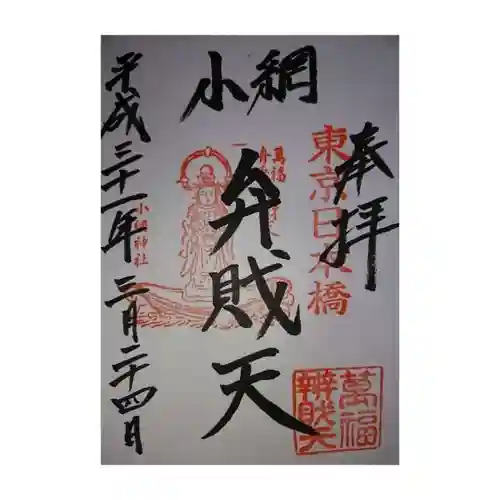 小網
奉拝
東京日本橋
萬福
弁財天
小網神社
平成三十一年三月二十四日
萬福
辨財天